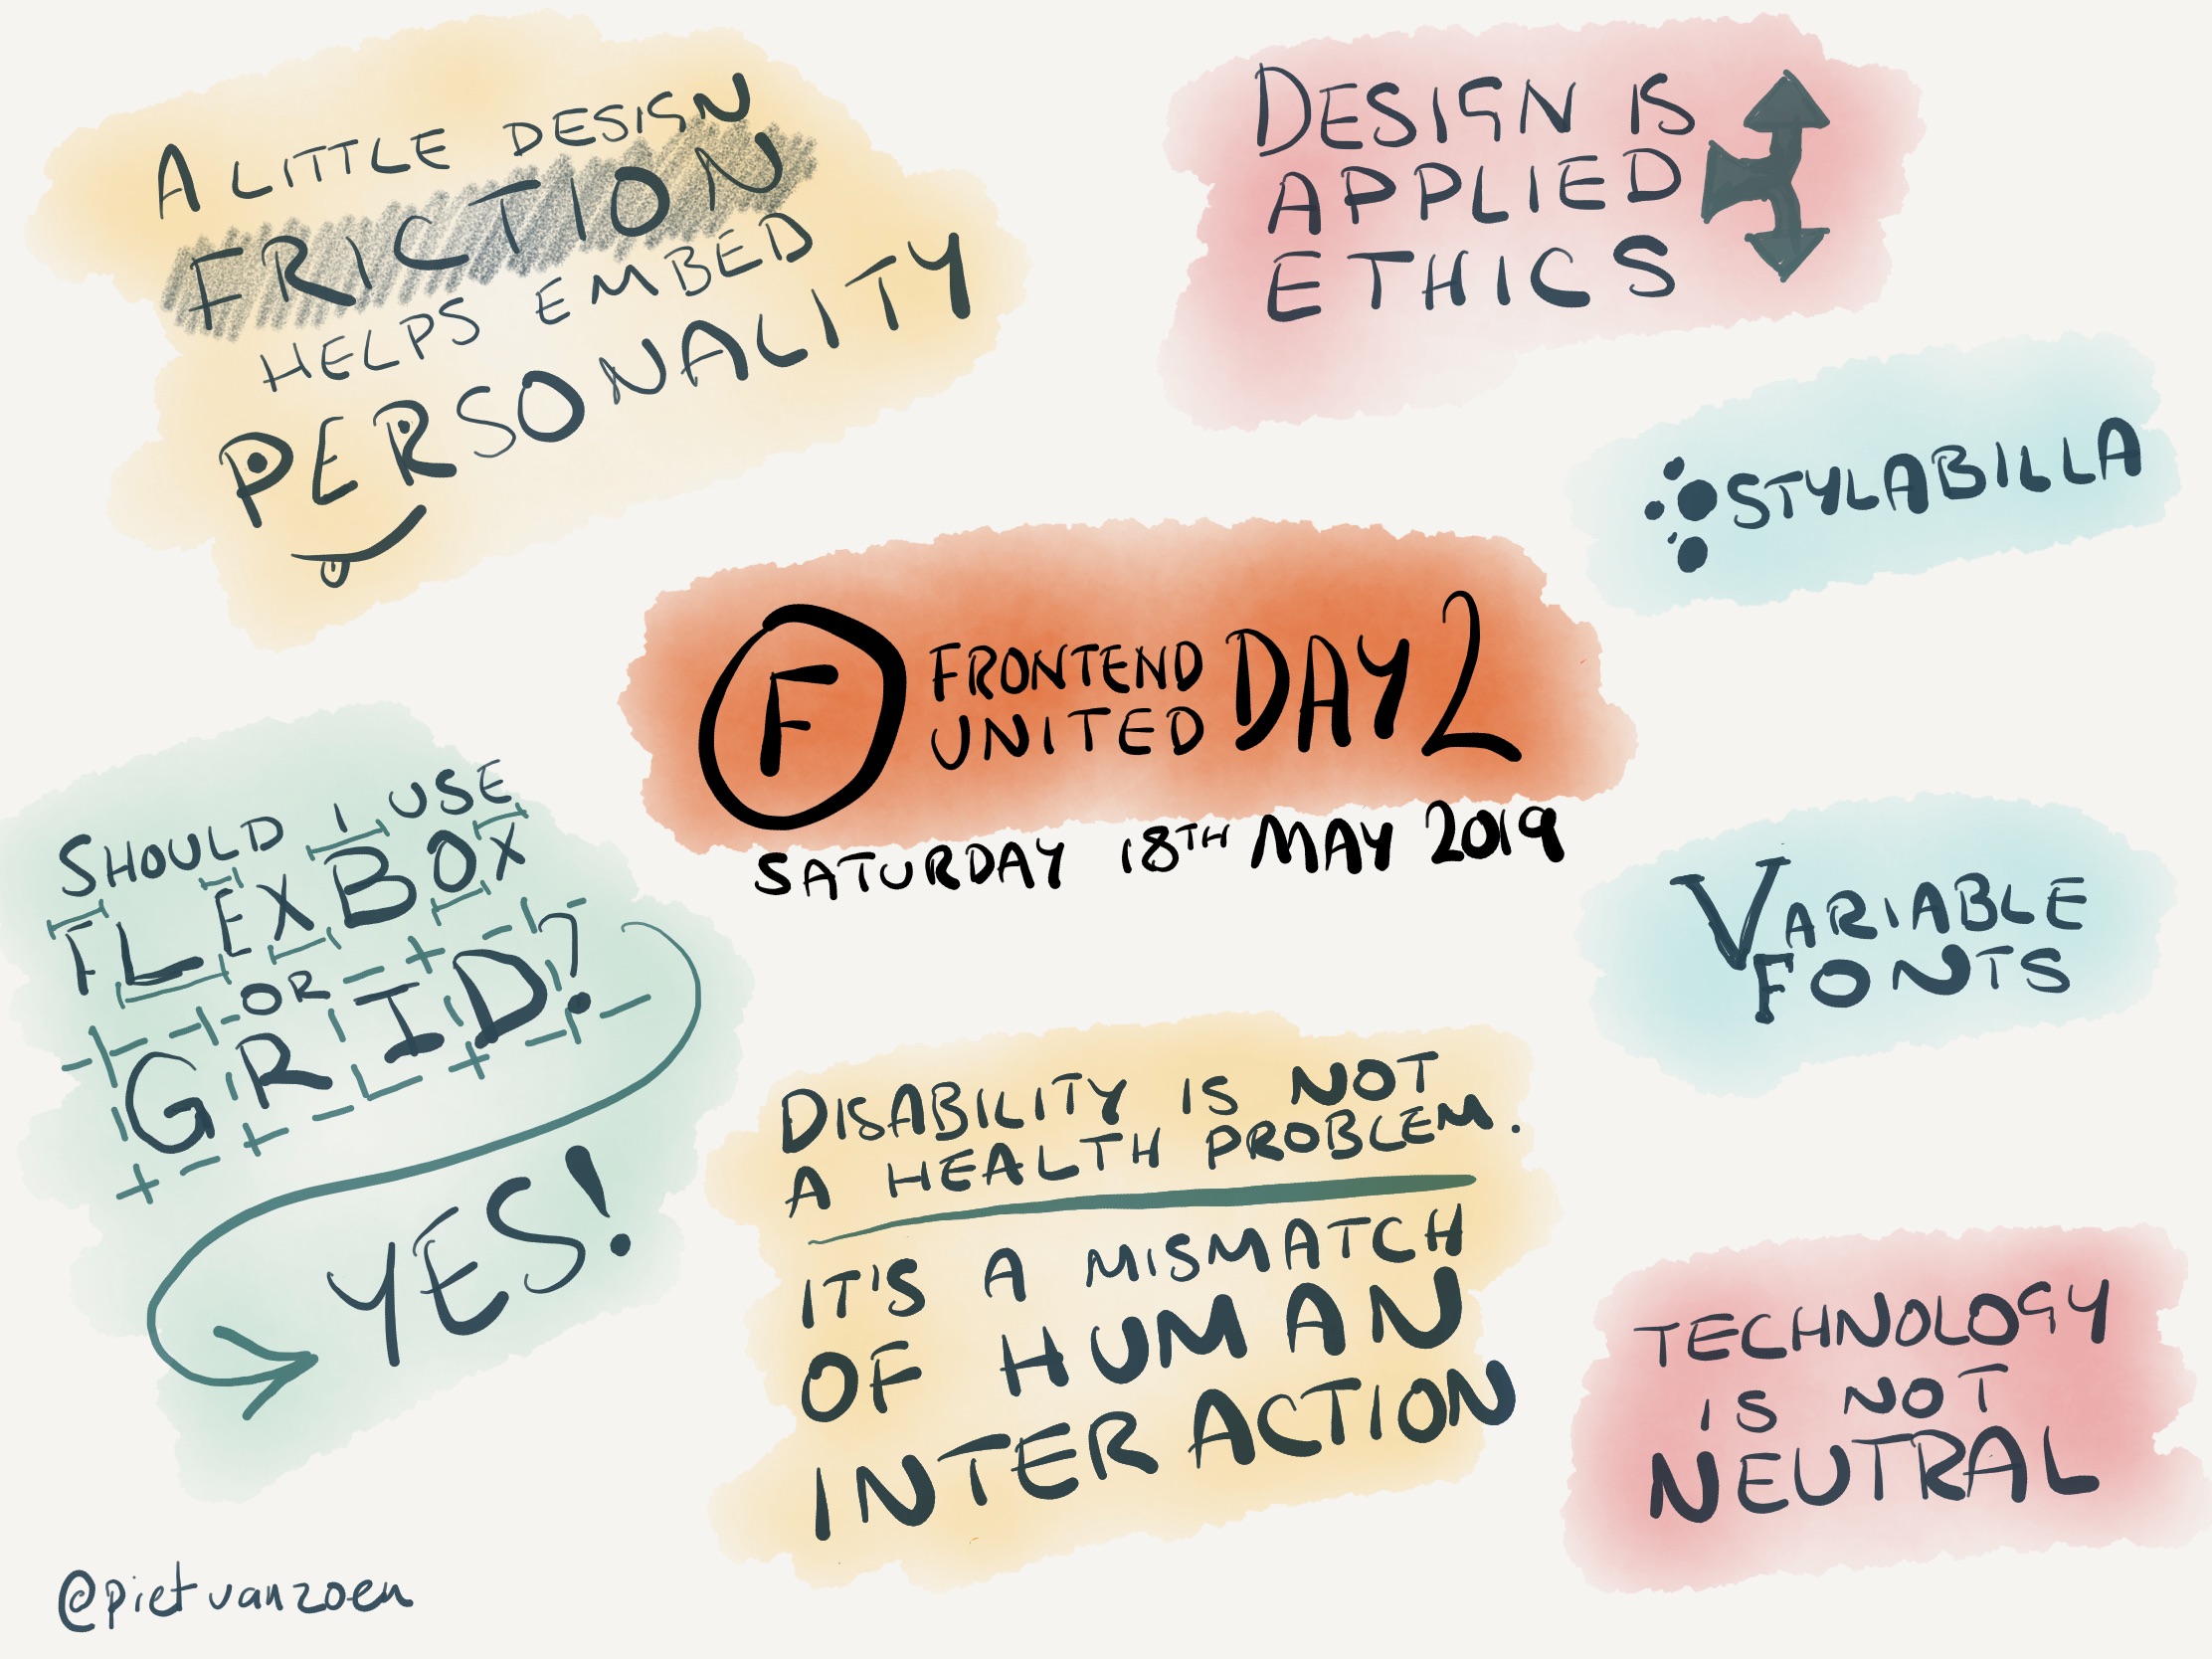 A LITTLE DESIGN
FRICTION
HELPS EMBED
PERSONALITY
DESIGN IS
APPLIED
ETHICS
STYLABILLA
F
FRONTEND
UNITED
DAY 2
SATURDAY 18TH MAY 2019
SHOULD I USE
FLEXBOX
OR
GRID?
YES!
VARIABLE
FONTS
DISABILITY IS NOT
A HEALTH PROBLEM.
IT'S A MISMATCH
OF HUMAN
INTERACTION
TECHNOLOGY
IS NOT
NEUTRAL
@pietvanzoen